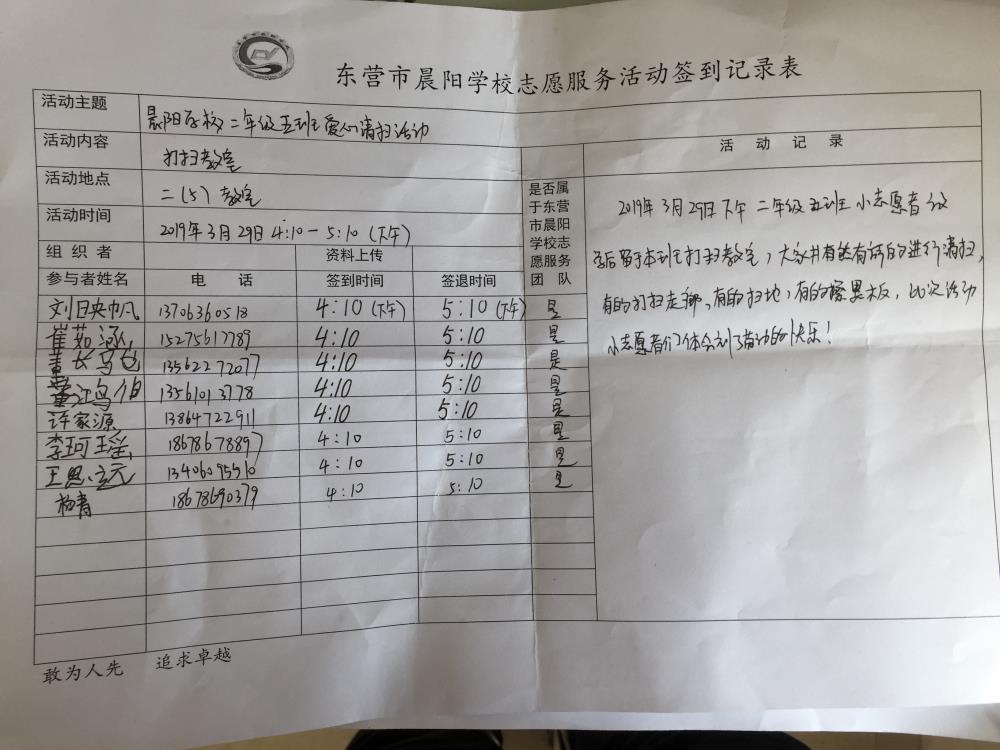 东营市晨阳学校志愿服务活动签到记录表
活动主题 晨阳学校二年级五班爱心清扫活动
活动内容 打扫教室
活动地点 二(5)教室
活动时间 2019年3月29日 4:10-5:10(下午)
组织者 资料上传
参与者姓名 电话 签到时间 签退时间
是否属于东营市晨阳学校志愿服务团队
刘映帆 13706360518 4:10(下午) 5:10(下午) 是
崔茹涵 15275617789 4:10 5:10 是
13562272077 4:10 5:10 是
13561013778 4:10 5:10 是
许家源 13864722911 4:10 5:10 是
李珂瑶 18678678897 4:10 5:10 是
王思 13406095510 4:10 5:10 是
杨青 18678690379 4:10 5:10
活动记录
2019年3月29日下午二年级五班小志愿者放
学后留于本班打扫教室,大家井然有序的进行清扫,
有的打扫走廊、有的扫地,有的擦黑板,此次活动
小志愿者们体会到了劳动的快乐!
敢为人先 追求卓越